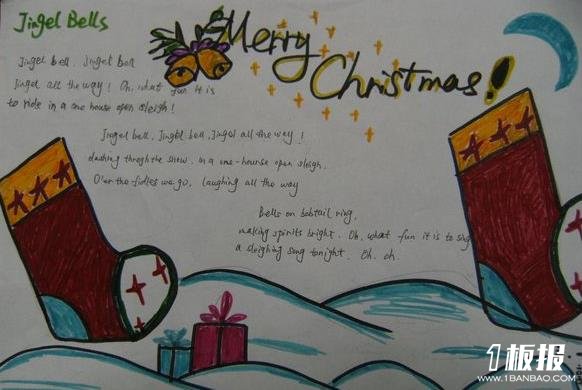 Jingel Bells
Merry
Christmas!
Jingel bell, Jingel bell
Jingel all the way! Oh, what fun it is
to ride in a one house open sleigh!
Jingel bell, Jingel bell, Jingel all the way!
dashing throght the show, in a one-hourse open sleigh,
O'er the fidles we go, laughing all the way
Bells on bobtail ring,
making spirits bright. Oh, what fun it is to sing
a sleighing song tonight. Oh, oh
1板报
WWW.1BANBAO.COM